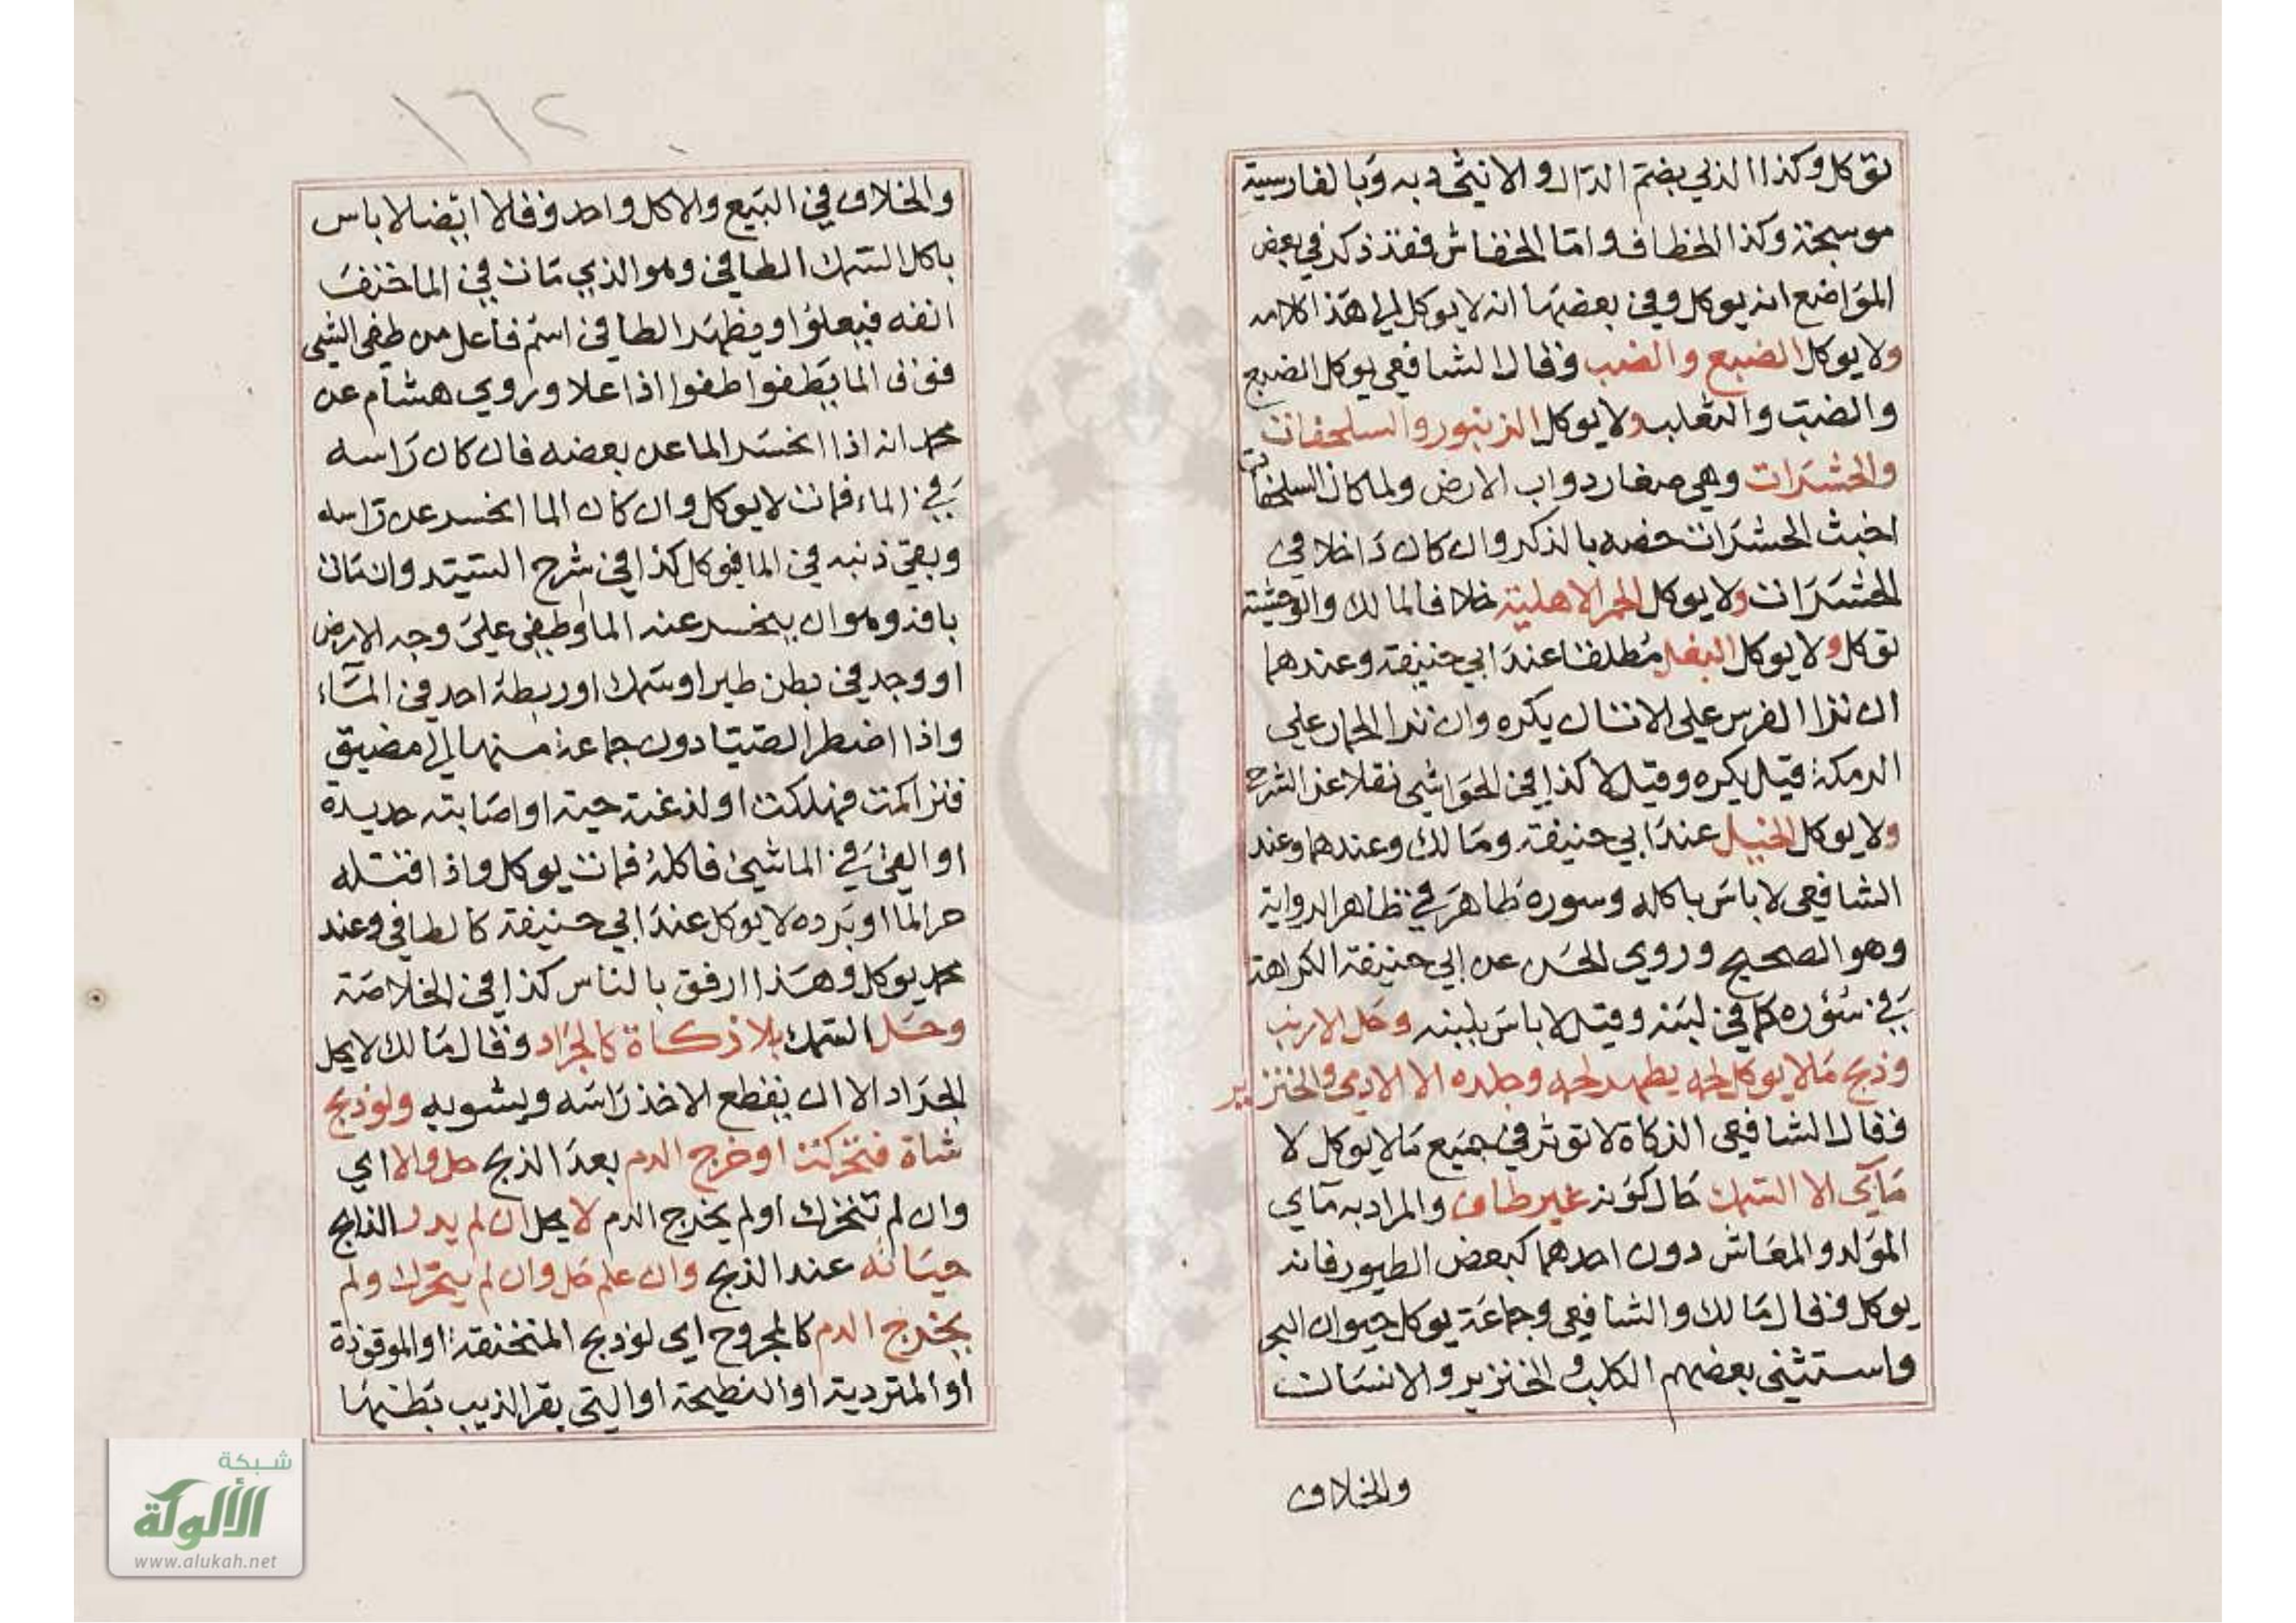 توكل وكذا الدلي بضم الدال والانثى دبه وبالفارسية
موسجة وكذا الخطاف واما الخفاش فقد ذكر في بعض
المواضع انه يوكل وفي بعضها انه لا يوكل الى هذا كلامه
ولا يوكل الضبع والضب وقال الشافعي يوكل الضبع
والضب والثعلب ولا يوكل الزنبور والسلحفات
والحشرات وهي صغار دواب الارض ولما كان السلحفات
اخبث الحشرات خصه بالذكر وان كان داخلا في
الحشرات ولا يوكل الحمر الاهلية خلافا لمالك والوحشية
توكل ولا يوكل البغل مطلقا عند ابي حنيفة وعندهما
ان نزا الفرس على الاتان يكره وان نزا الحمار على
الرمكة قيل يكره وقيل لا كذا في الحواشي نقلا عن الشرح
ولا يوكل الخيل عند ابي حنيفة ومالك وعندهما وعند
الشافعي لا باس باكله وسوره طاهر في ظاهر الرواية
وهو الصحيح وروي الحسن عن ابي حنيفة الكراهة
في سؤره كما في لبنه وقيل لا باس بلبنه وحل الارنب
وذبح مالا يوكل لحمه يطهر لحمه وجلده الا الادمي والخنزير
وقال الشافعي الذكاة لا توثر في جميع مالا يوكل لا
مآئى الا السمك حال كونه غير طاف والمراد به مآي
المولد والمعاش دون احدهما كبعض الطيور فانه
يوكل وقال مالك والشافعي وجماعة يوكل حيوان البحر
واستثنى بعضهم الكلب والخنزير والانسان
والخلاف
١٦٢
والخلاف في البيع والاكل واحد وقالا ايضا لا باس
باكل السمك الطافي وهو الذي مات في الما حتف
انفه فيعلو او يظهر الطافي اسم فاعل من طفى الشي
فوق الما يطفوا طفوا اذا علا وروي هشام عن
محمد انه اذا انحسر الما عن بعضه فان كان راسه
في الماء فمات لا يوكل وان كان الما انحسر عن راسه
وبقي ذنبه في الما فيوكل كذا في شرح السيد وان مات
بافة وهو ان ينحسر عنه الما وطفي على وجه الارض
او وجد في بطن طير او سمك او ربطه احد في الماء
واذا اضطر الصيادون جماعة منها الى مضيق
فتراكمت فهلكت او لدغته حية او اصابته حديدة
او القى في الما شيئ فاكله فمات يوكل واذا قتله
حر الما او برده لا يوكل عند ابي حنيفة كالطافي وعند
محمد يوكل وهذا ارفق بالناس كذا في الخلاصة
وحل السمك بلا ذكاة كالجراد وقال مالك لا يحل
الجراد الا ان يقطع الاخذ راسه ويشويه ولو ذبح
شاة فتحركت او خرج الدم بعد الذبح حل والا اي
وان لم تتحرك او لم يخرج الدم لا يحل ان لم يدر الذابح
حياته عند الذبح وان علم حل وان لم يتحرك ولم
يخرج الدم كالمجروح اي لو ذبح المنخنقة او الموقوذة
او المتردية او النطيحة او التي بقر الذيب بطنها
شبكة
الألوكة
www.alukah.net